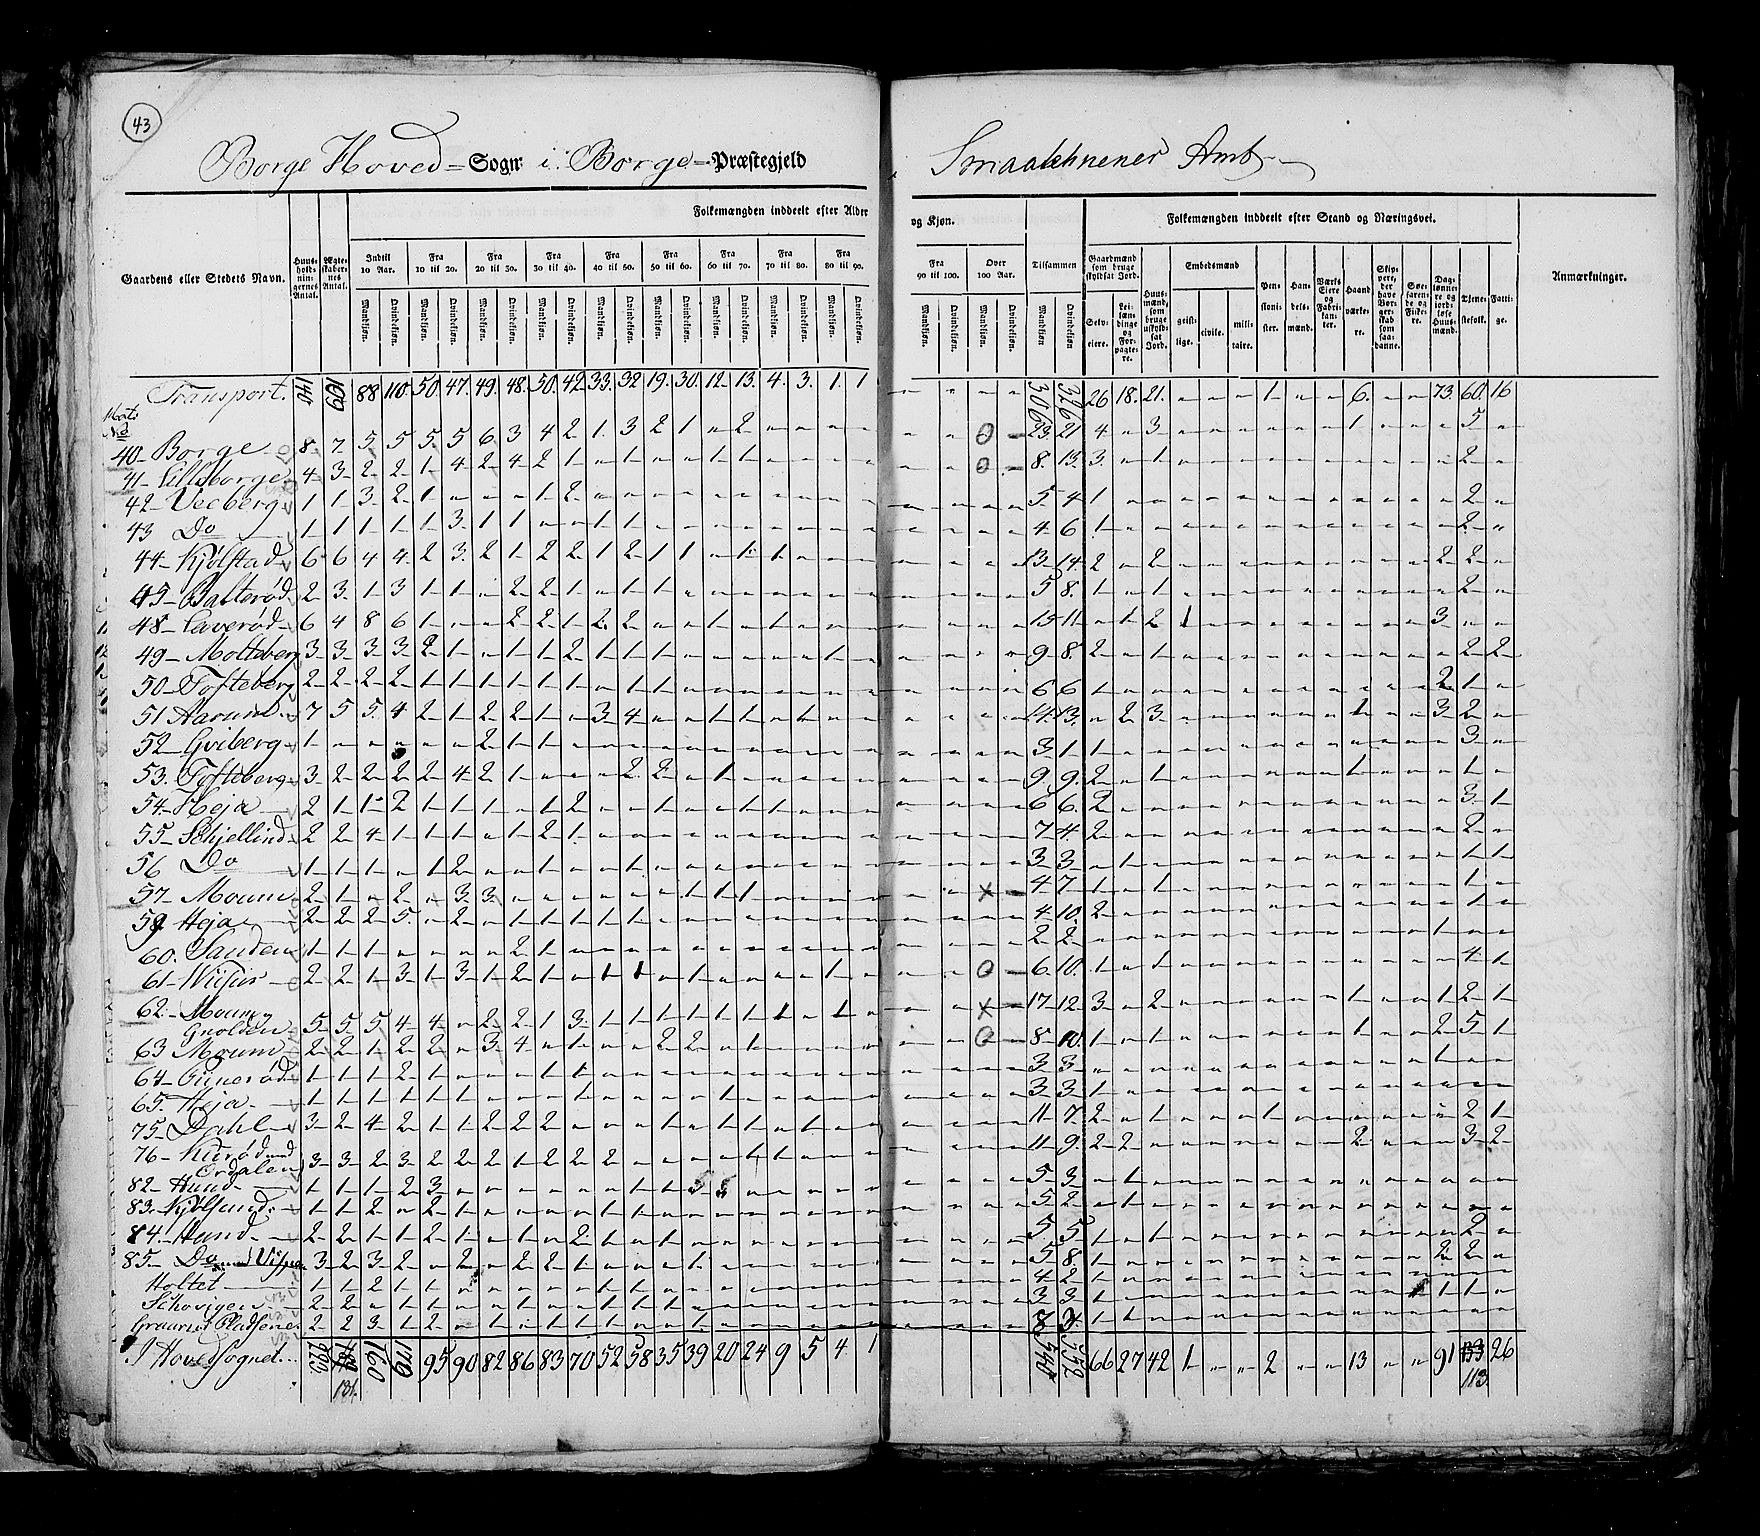 43
Borge Hoved-Sogn i Borge-Præstegjeld
Smaalehnenes Amt
Gaardens eller Stedets Navn.
Huus-holdningernes Antal.
Ægteskabernes Antal.
Folkemængden inddeelt efter Alder og Kjøn.
Indtil 10 Aar. Fra 10 til 20. Fra 20 til 30. Fra 30 til 40. Fra 40 til 50. Fra 50 til 60. Fra 60 til 70. Fra 70 til 80. Fra 80 til 90. Fra 90 til 100. Over 100 Aar. Tilsammen
Mandkjøn. Qvindekjøn.
Folkemængden inddeelt efter Stand og Næringsvei.
Gaardmænd som bruge skyldsat Jord.
Selv-eiere.
Huusmænd, som bruge uskyldsat Jord.
Embedsmænd
geistlige. civile. militaire.
Pensionister.
Handelsmænd.
Værks Eiere og Fabrikanter.
Haandværkere.
Skippere, der have Borgerskab som saadanne.
Søefarende og Fiskere.
Dagslønnere og jordløse Huusmænd.
Tjenestefolk.
Fattige.
Anmærkninger.
Transport. 144 109 88 110 50 47 49 48 50 42 33 32 19 30 12 13 4 3 1 1 306 326 26 18 21 1 6 73 60 16
40 Borge 8 7 5 5 5 5 6 3 4 2 1 3 2 1 2 23 21 4 3 1 5
41 Lilleborge 4 3 2 2 1 4 2 4 2 1 1 1 1 8 13 3 1 2
42 Veeberg 1 1 3 2 1 1 2 5 4 1 2
43 Do 1 1 1 1 1 3 1 1 1 1 4 6 1 2
44 Kjølstad 6 6 4 4 2 3 2 1 2 2 1 2 1 1 1 1 13 14 2 2 2 2
45 Balterød 2 3 1 3 1 1 2 2 1 1 1 5 8 1 1 2
48 Laverød 6 4 8 6 1 2 2 1 2 2 15 11 1 2 1 3
49 Molteberg 3 3 3 3 2 1 1 1 2 1 1 1 1 9 8 2 1 2 2
50 Tofteberg 2 2 2 2 1 1 1 1 1 1 1 1 6 6 1 2 1
51 Aarum 7 5 5 4 2 1 2 2 1 3 4 1 1 1 14 13 2 3 1 3 2
52 Gviberg 1 2 1 1 3 1 1 3
53 Tofteberg 3 2 2 2 2 4 2 1 2 2 1 9 9 2 1 1 1
54 Heja 2 1 1 2 1 1 1 1 2 1 1 1 6 6 2 3 1
55 Schjellind 2 2 4 1 1 1 1 2 1 7 4 2 2
56 Do 1 1 1 1 2 1 1 3 3 1 1 1
57 Moum 2 1 2 3 3 1 1 1 4 7 1 1 1
59 Heja 2 2 2 5 2 1 1 1 1 4 10 2
60 Sanden 1 1 1 2 1 2 2 1
61 2 2 1 3 1 3 1 2 1 1 1 1 1 6 10 1 1 4 1
62 Moum, Gnolden 5 5 5 4 4 2 2 1 3 1 1 1 1 1 1 1 1 17 12 3 2 1 1 2 1
63 Moum 2 2 1 2 2 3 4 1 2 2 1 8 10 1 1 1 2 5 1
64 1 1 1 2 1 1 1 3 3 1
65 Heja 1 1 1 1 1 1 1 1 3 3 1
75 Dahl 3 2 4 2 1 1 2 2 2 1 1 1 1 11 7 2 1 1 2 1
76 3 3 2 3 2 2 2 1 2 2 2 1 1 11 9 2 2 2 3 2
82 Hund 1 1 1 2 3 1 1 5 3 1
83 1 1 2 2 1 1 5 2 1
84 Hund 2 2 1 1 2 1 1 2 1 1 5 5 1 1 2
85 Do 3 2 3 2 2 2 2 1 1 5 8 1 2 2
Holtet 1 1 2 1 1 1 1 4 2 1
2 2 1 1 1 1 1 1 3 3 1 1 1
2 2 3 1 2 1 1 1 1 1 8 1 1
I Hovedsognet 160 179 95 90 82 86 83 70 52 58 35 39 20 24 9 5 4 1 66 27 42 1 2 13 91 113 26
131.